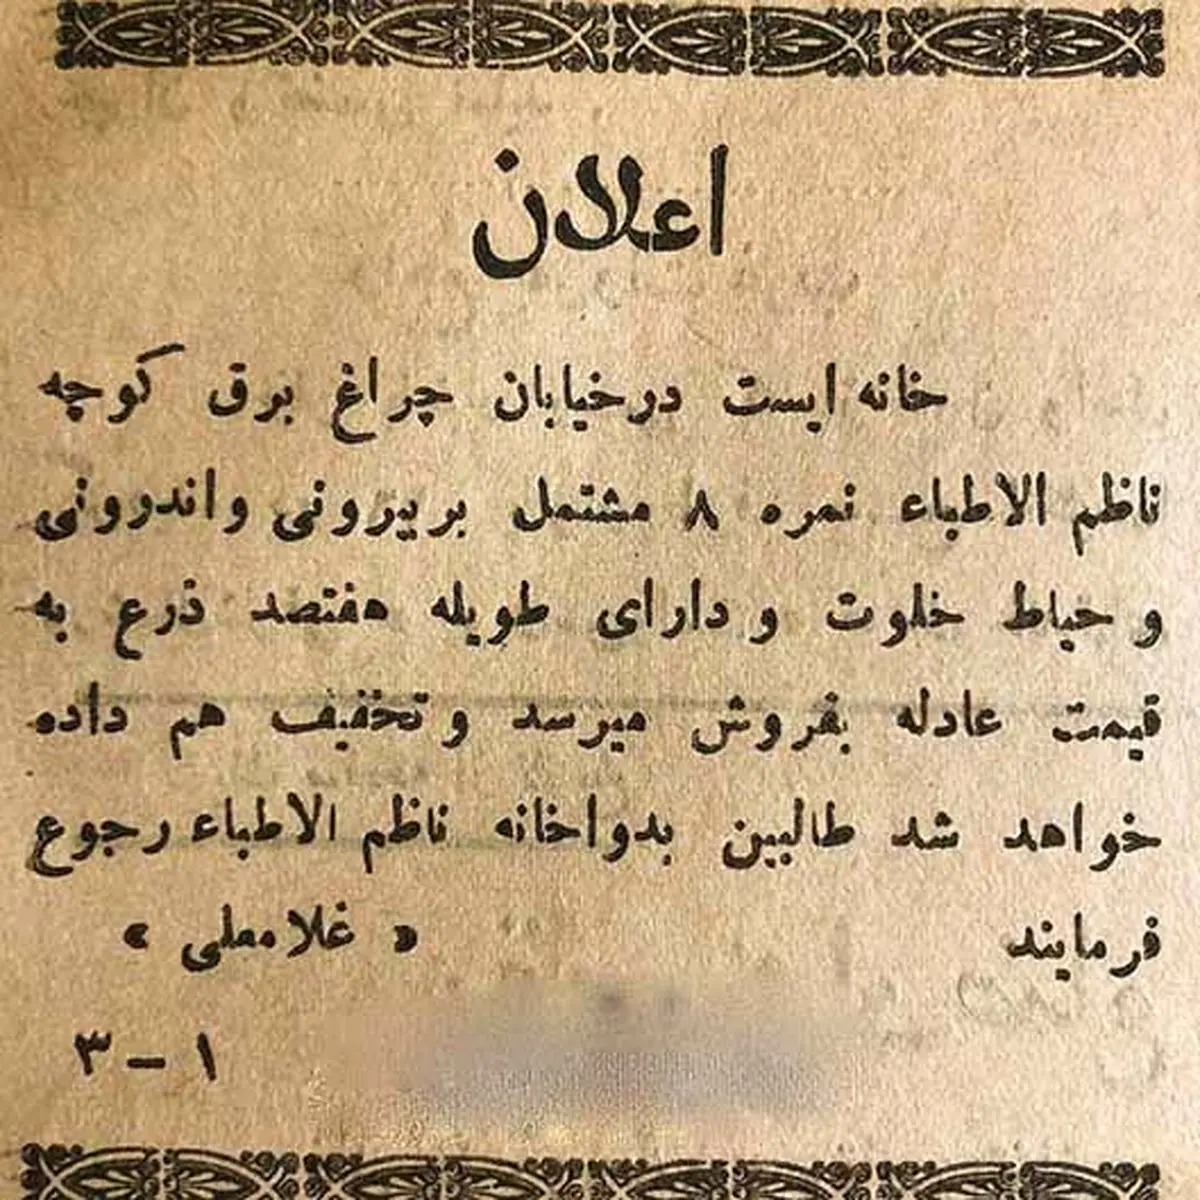 اعلان
خانه ایست درخیابان چراغ برق کوچه
ناظم الاطباء نمره ۸ مشتمل بربیرونی واندرونی
و حیاط خلوت و دارای طویله هفتصد ذرع به
قیمت عادله بفروش میرسد و تخفیف هم داده
خواهد شد طالبین بدواخانه ناظم الاطباء رجوع
فرمایند « غلامعلی »
۱ – ۳